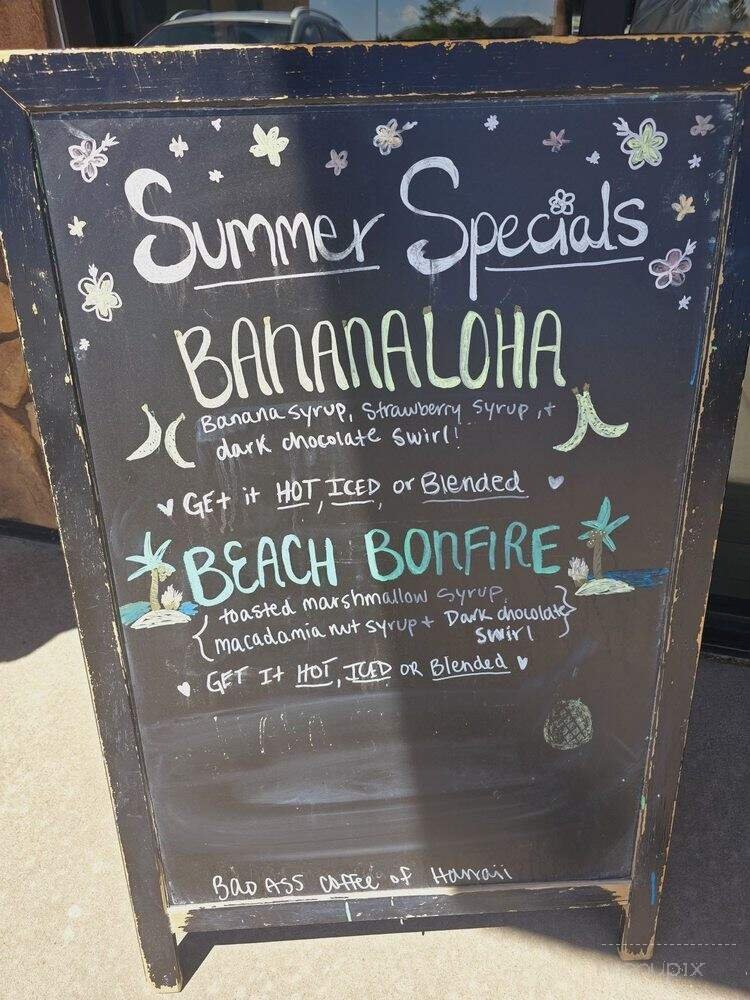 Summer Specials
BANANALOHA
Banana syrup, Strawberry syrup, +
dark chocolate swirl!
GEt it HOT, ICED, or Blended
BEACH BONFIRE
toasted marshmallow syrup,
macadamia nut syrup + Dark chocolate
swirl
GET It HOT, ICED OR Blended
BAD ASS coffee of Hawaii